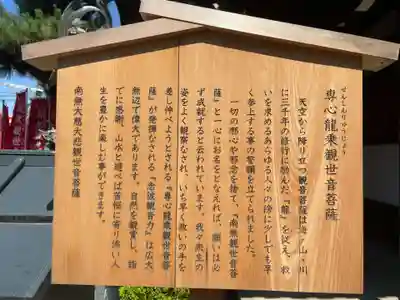 せんしんりゅうじょう
専心龍乗観世音菩薩
天空から降り立つ観音菩薩は海・山・川
に三千年の修行に励んだ『龍』を従え、救
いを求めるあらゆる人々の傍に少しでも早
く参上する事の誓願を立てられました。
一切の邪心や邪念を捨て、『南無観世音菩
薩』と一心にお名をとなえれば、願いは必
ず成就すると云われています。我々衆生の
姿をよく観察なされ、いち早く救いの手を
差し伸べようとされる『専心龍乗観世音菩
薩』が発揮なされる『念彼観音力』は広大
無辺で偉大であります。自然を観賞し、詣
でに感謝、山水と遊べば苦悩に寄り添い人
生を豊かに楽しむ事ができます。
南無大慈大悲観世音菩薩